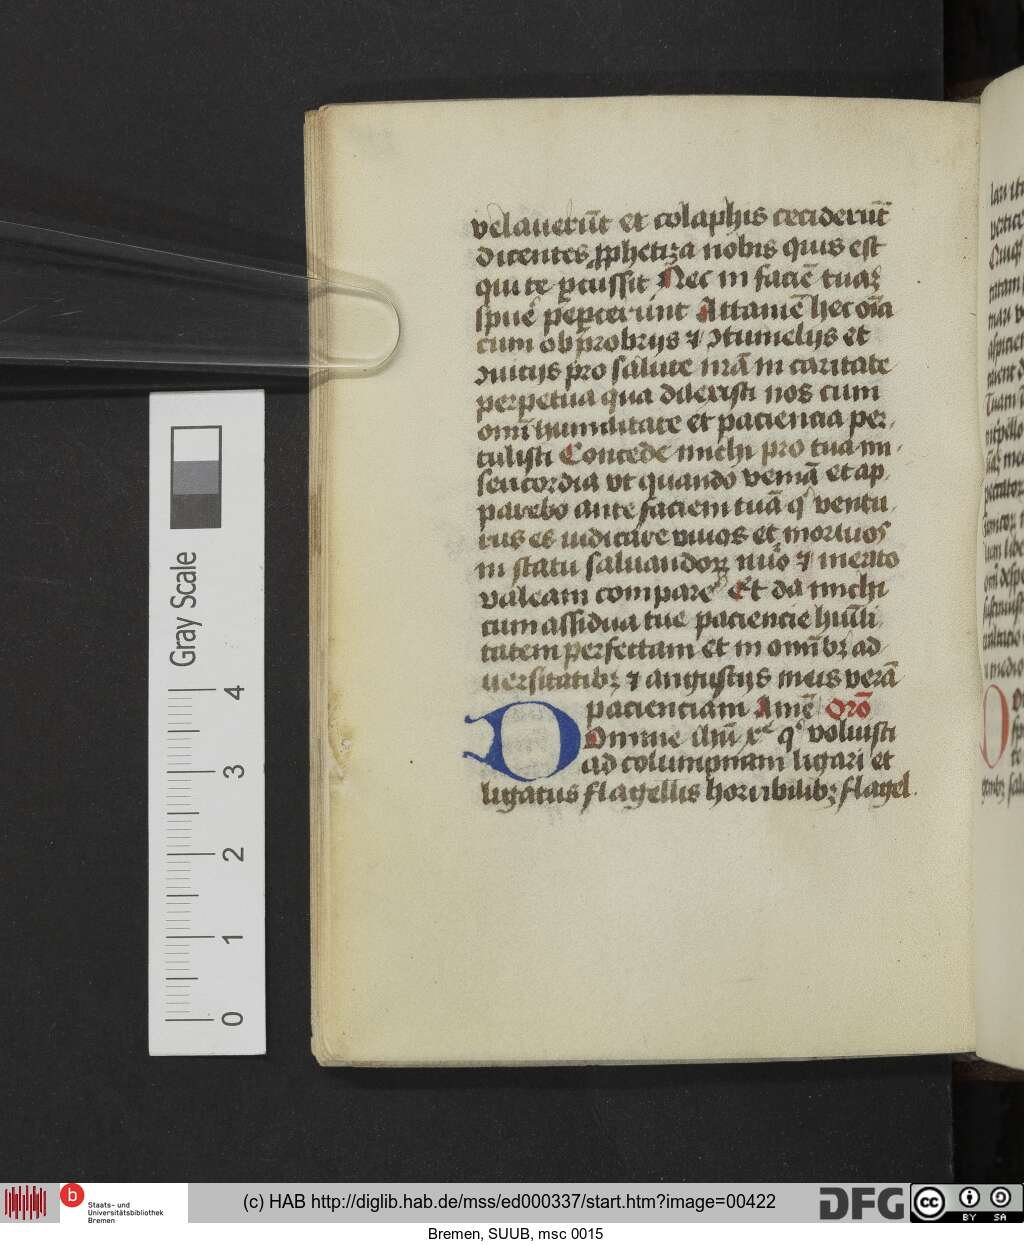 velauerūt et colaphis ceciderūt
dicentes ꝓphetiza nobis quis est
qui te ꝑcussit Nec in faciē tuaꝫ
spuē peꝑcerūnt Attamē hec oīa
cum obprobrijs ⁊ ↄtumelijs et
ↄuicijs pro salute nrā in caritate
perpetua qua dilexisti nos cum
omī humilitate et paciencia per
tulisti Concede michi pro tua mi
sericordia vt quando veniā et ap
parebo ante faciem tuā qͥ ventu
rus es iudicare viuos et mortuos
in statu saluandoꝝ nūo ⁊ merito
valeam compareˢ Et da michi
cum assidua tue paciencie humīli
tatem perfectam et in omībꝫ ad
uersitatibꝫ ⁊ angustijs meis verā
pacienciam Amē Orō
Domine ihū xᵉ qͥ voluisti
ad columpnam ligari et
ligatus flagellis horribilibꝫ flagel
Gray Scale
4
3
2
1
0
b
Staats- und
Universitätsbibliothek
Bremen
(c) HAB http://diglib.hab.de/mss/ed000337/start.htm?image=00422
DFG
cc
BY SA
Bremen, SUUB, msc 0015